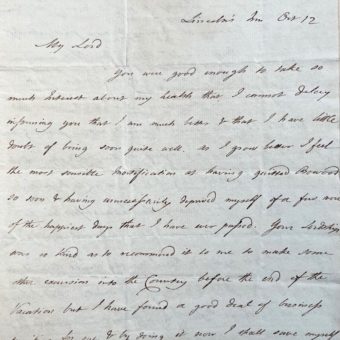 Lincoln's Inn Oct 12
My Lord
You were good enough to take so
much Interest about my health that I cannot delay
informing you that I am much better & that I have little
doubt of being soon quite well. as I grow better I feel
the most sensible mortification at having quitted Bowood
so soon & having unnecessarily deprived myself of a few more
of the happiest days that I have ever passed. Your Lordship
was so kind as to recommend it to me to make some
other excursion into the Country before the end of the
Vacation but I have found a good deal of business
& by doing it now I shall save myself